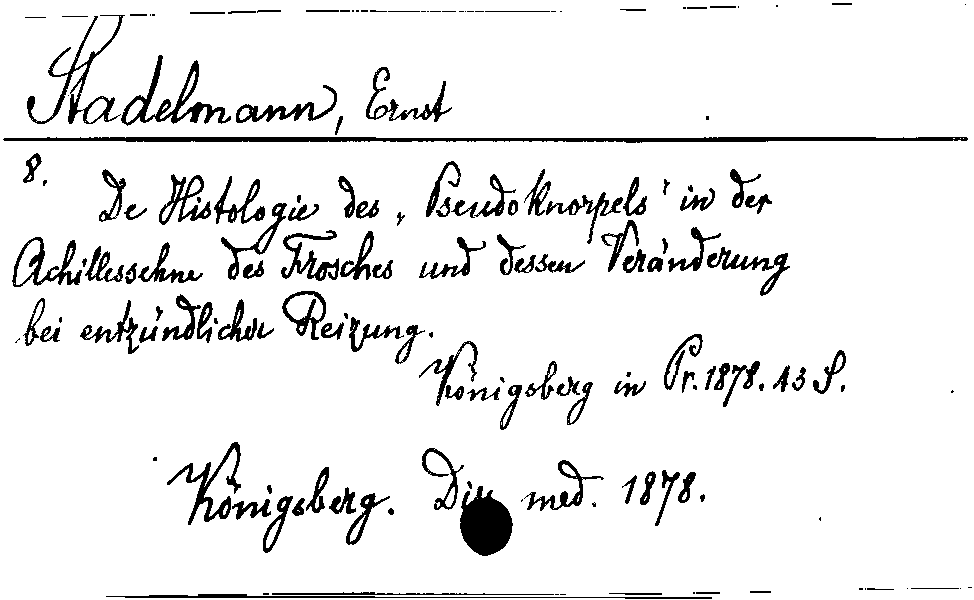 Stadelmann, Ernst
8.
De Histologie des „Pseudoknorpels" in der
Achillessehne des Frosches und dessen Veränderung
bei entzündlicher Reizung.
Königsberg in Pr. 1878. 43 S.
Königsberg. Diss med. 1878.